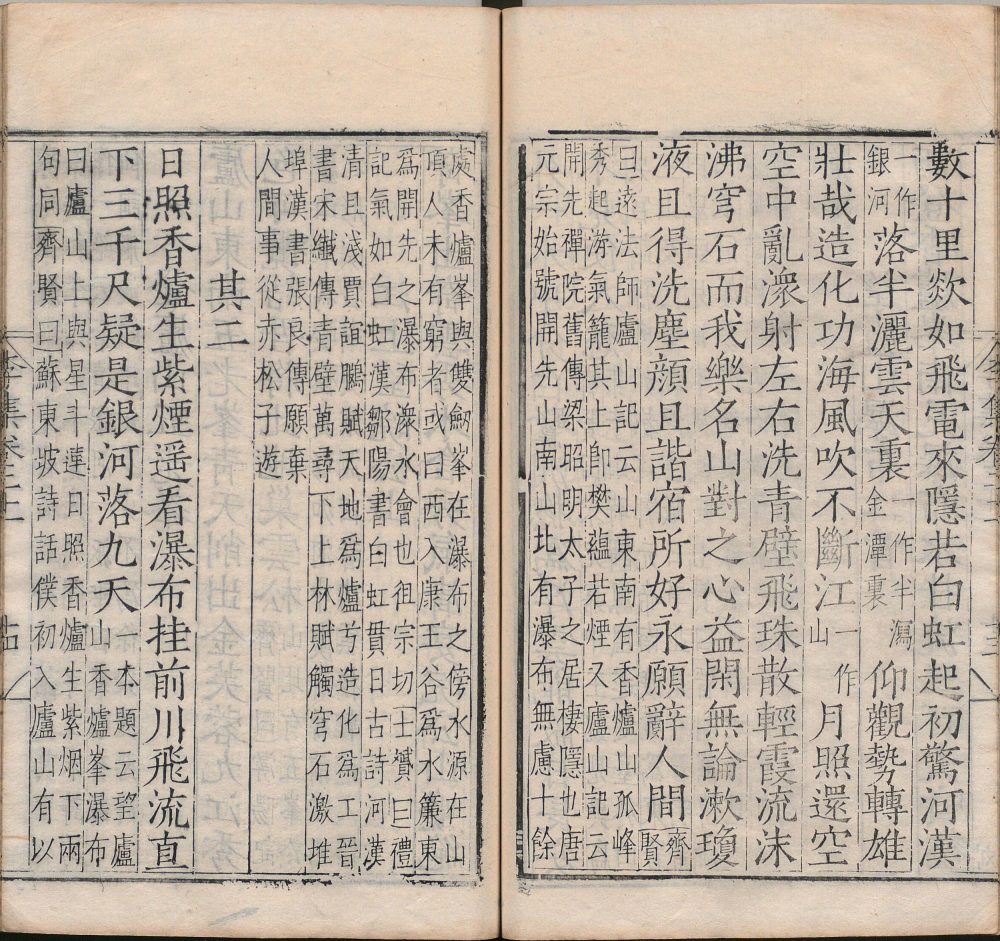 數十里欻如飛電來隱若白虹起初驚河漢
一作銀河落半灑雲天裏一作半瀉金潭裏仰觀勢轉雄
壯哉造化功海風吹不斷江一作山月照還空
空中亂潨射左右洗青壁飛珠散輕霞流沫
沸穹石而我樂名山對之心益閑無論漱瓊
液且得洗塵顏且諧宿所好永願辭人間齊賢
曰遠法師廬山記云山東南有香爐山孤峰
秀起游氣籠其上卽樊蘊若煙又廬山記云
開先禪院舊傳梁昭明太子之居棲隱也唐
元宗始號開先山南山北有瀑布無慮十餘
處香爐峯與雙劒峯在瀑布之傍水源在山
頂人未有窮者或曰西入康王谷爲水簾東
爲開先之瀑布潨水會也徂宗切士贇曰禮
記氣如白虹漢鄒陽書白虹貫日古詩河漢
清且淺賈誼鵩賦天地爲爐兮造化爲工晉
書宋纖傳青壁萬尋下上林賦觸穹石激堆
埠漢書張良傳願棄
人間事從赤松子遊
其二
日照香爐生紫煙遥看瀑布挂前川飛流直
下三千尺疑是銀河落九天一本題云望廬山香爐峯瀑布
曰廬山上與星斗連日照香爐生紫烟下兩
句同齊賢曰蘇東坡詩話僕初入廬山有以